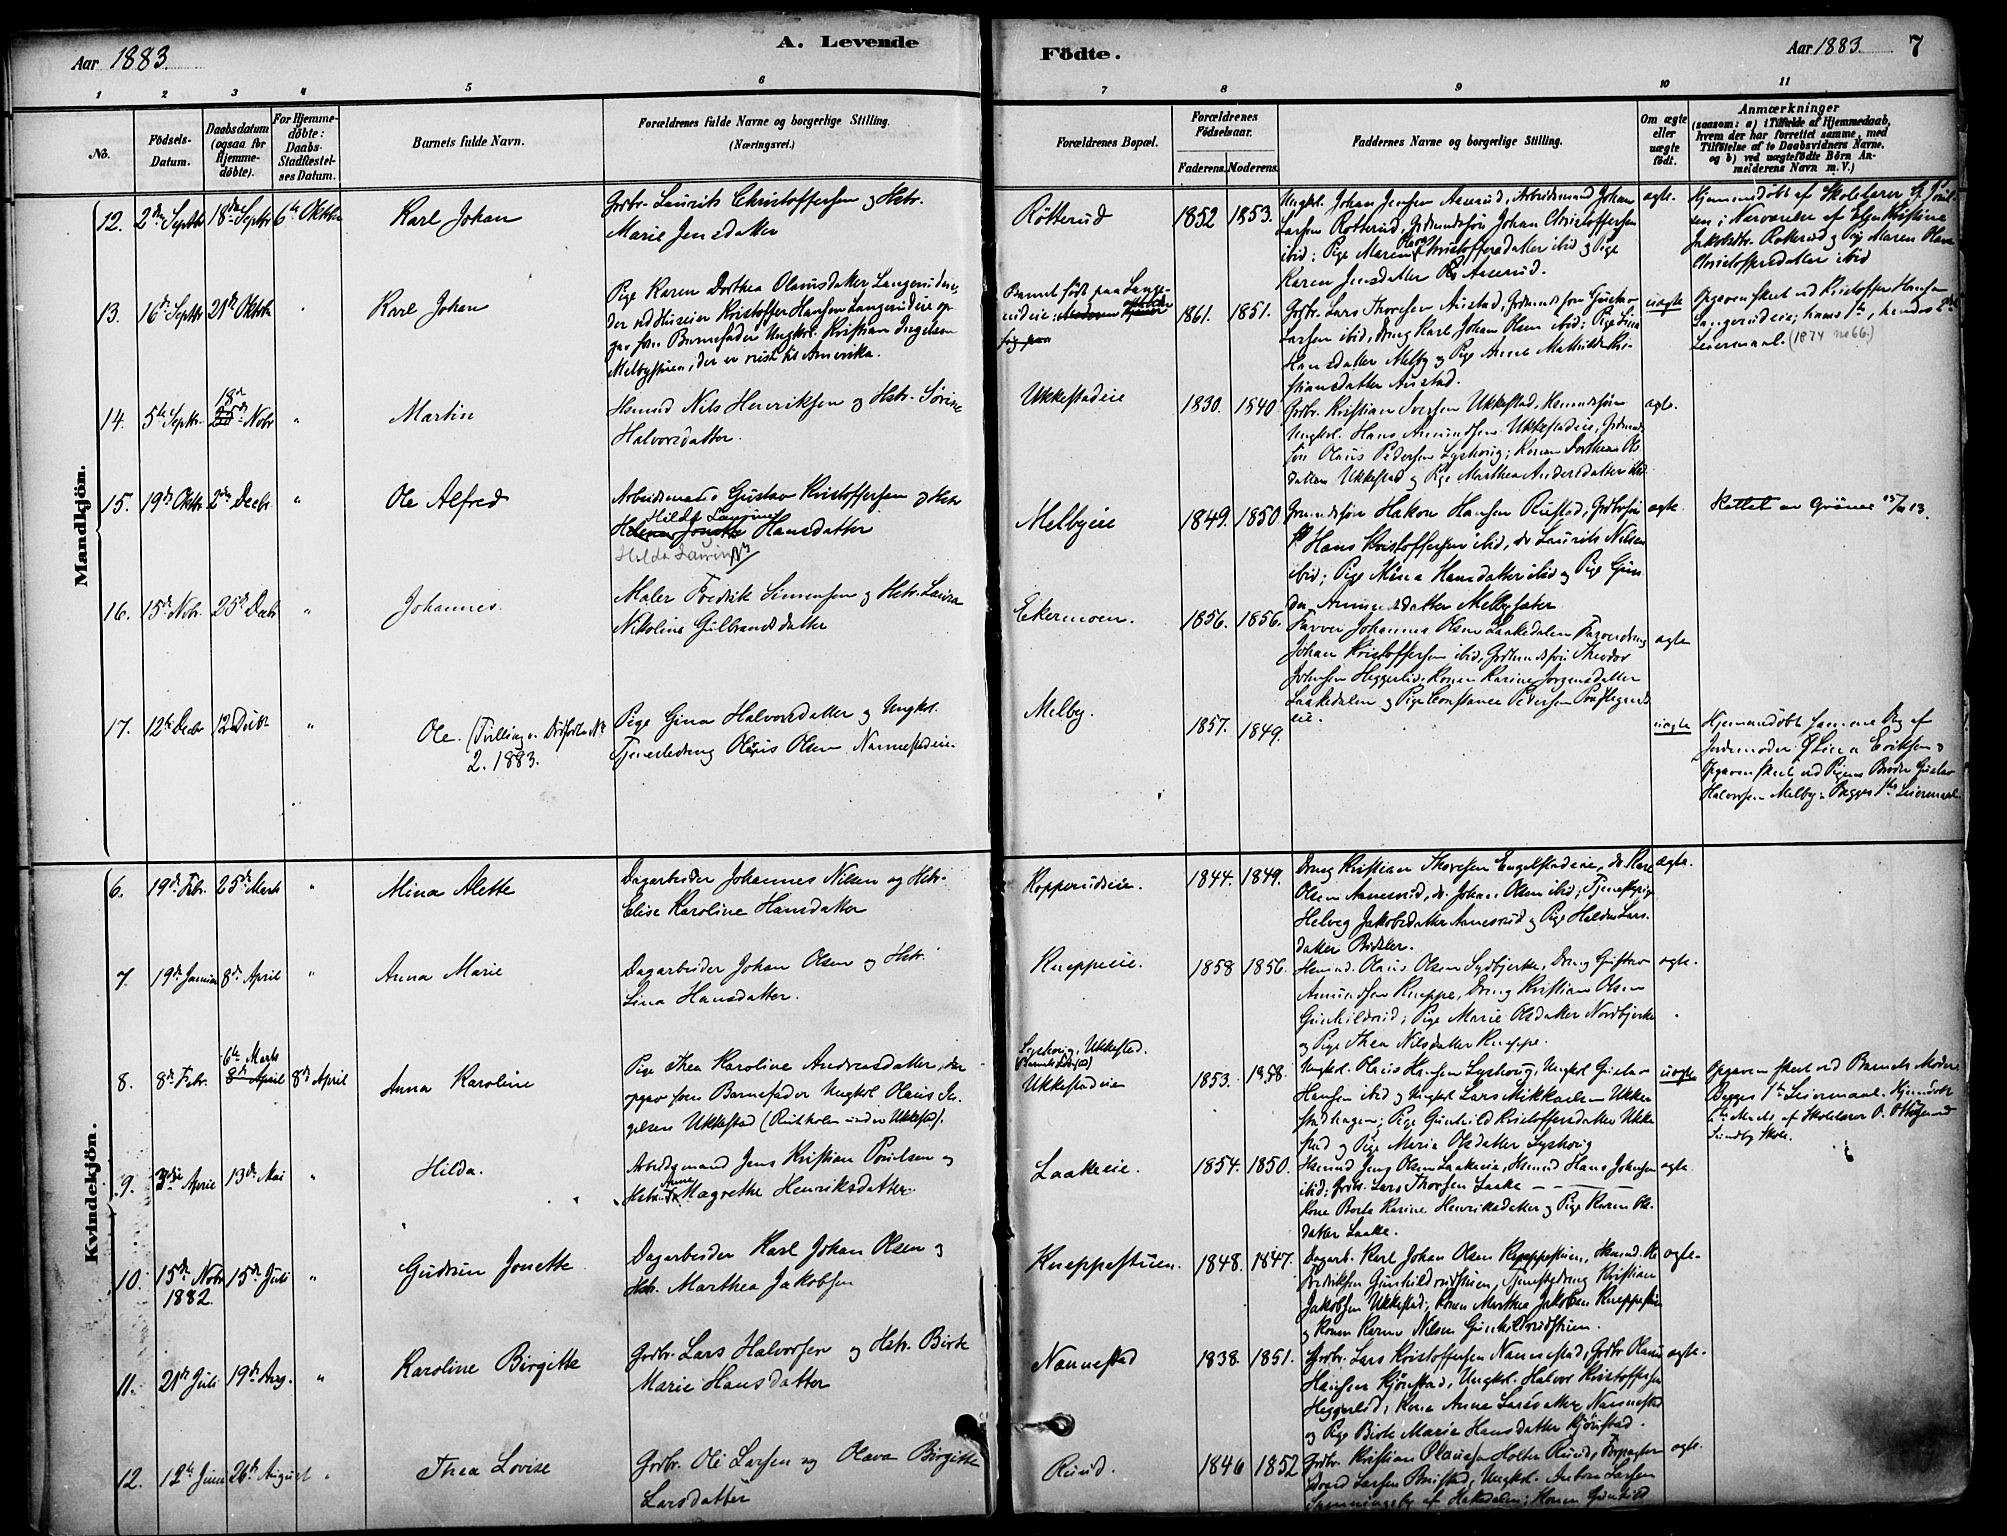 Aar 1883.
A. Levende
Födte.
Aar 1883.
7
1 2 3 4 5 6 7 8 9 10 11
No.
Födsels-
Datum.
Daabsdatum
(ogsaa for
Hjemme-
døbte).
For Hjemme-
døbte:
Daabs-
Stadfæstel-
ses Datum.
Barnets fulde Navn.
Forældrenes fulde Navne og borgerlige Stilling.
(Næringsvei.)
Forældrenes Bopæl.
Forældrenes
Födselsaar.
Faderens. Moderens.
Faddernes Navne og borgerlige Stilling.
Om ægte
eller
uægte
født.
Anmærkninger
(saasom: a) i Tilfælde af Hjemmedaab,
hvem der har forrettet samme, med
Tilföielse af to Daabsvidners Navne.
og b) ved uægtefödte Börn An-
melderens Navn m. V.)
Mandkjön.
12. 2den Septbr 18de Septbr 6te Oktbr
Karl Johan
Grdbr. Laurits Christoffersen og Hstr.
Marie Jensdatter
Rötterud
1852 1853.
Ungkl. Johan Jensen Aaserud, Arbeidsmand Johan
Larsen Rotterud, Grdmandssön Johan Christoffersen
ibid; Pige Maren Olava Christoffersdatter ibid og Pige
Karen Jensdatter Aaserud.
ægte.
Hjemmedöbt af Skolelærer
i Nærværelse af Elen Kristine
Jakobsdtr. Rotterud og Pig Maren Olava
Christoffersdatter ibid
13. 16de Septbr 21de Oktbr "
Karl Johan
Pige Karen Dorthea Olausdatter Langerudeie,
der ved Huseier Kristoffer Hansen Langerudeie op-
gav som Barnefader Ungkl. Kristian Ingelsen
Melbystuen, der er reist til Amerika.
Barnet födt paa Lange-
rudeie.
1861. 1851.
Grdbr. Lars Thoresen Austad, Grdmandssön Gustav
Larsen ibid, Dreng Karl Johan Olsen ibid; Pige Lina
Hansdatter Melby og Pige Anne Mathilde Kri-
stiansdatter Austad.
uægte
Opgaven skeet ved Kristoffer Hansen
Langerudeie; hans 1ste, hendes 2det
Leiermaal. (1874 no 66.)
14. 5te Septbr. 18de Nobr "
Martin
Hsmnd Nils Henriksen og Hstr. Sörine
Halvorsdatter.
Ukkestadeie
1830. 1840
Grdbr. Kristian Iversen Ukkestad, Hsmndssön
Ungkl. Hans Amundsen Ukkestadeie, Grdmands-
sön Olaus Pedersen Lyshoug; Konen Dorthea Ols-
datter Ukkestad og Pige Marthea Andersdatter ibid
ægte.
15. 19de Oktbr 2den Decbr. "
Ole Alfred
Arbeidsmand Gustav Kristoffersen og Hstr
Hilda Laurine
Helene Jonette Hansdatter
Hilda Laurine
Melbyeie
1849. 1850
Grmandssön Hakon Hansen Rustad, Grdbrsön
Hans Kristoffersen ibid, do Laurits Nilsen
ibid; Pige Mina Hansdatter ibid og Pige Gun-
da Amundsdatter Melbysæter
ægte.
Rettet av Grönne 15/ 13.
16. 15de Nobr. 25de Decbr "
Johannes.
Maler Fredrik Simensen og Hstr. Laura
Nikoline Gulbrandsdatter
Ekermoen.
1856. 1856.
Farver Johannes Olsen Laakedalen Farverdreng
Johan Kristoffersen ibid, Grdmandssön Theodor
Johnsen Heggerlid, Konen Karine Jorgensdatter
Laakedalen og Pige Constance Pedersen
eie.
ægte
17. 12te Decbr 12 Decbr "
Ole. (Tvilling m. Dödfödte No
2. 1883.
Pige Gina Halvorsdatter og Ungkl.
Tjenestedreng Olaus Olsen Nannestadeie.
Melby.
1857. 1849.
uægte
Hjemmedöbt samme Dag af
Jordemoder Lina Eriksen
Opgaven skeet ved Pigens Broder Gustav
Halvorsen Melby. Begges 1ste Leiermaal.
Kvindekjön.
6. 19de Febr. 25de Marts "
Mina Alette
Dagarbeider Johannes Nilsen og Hstr.
Elise Karoline Hansdatter
Kopperudeie.
1844. 1849.
Dreng Kristian Thoresen Engelstadeie, do Kare
Olsen Aanesrud, do Johan Olsen ibid; Tjenestepige
Helveg Jakobsdatter Aanesrud og Pige Helda Lars-
datter Bidsler.
ægte.
7. 19de Januar 8de April "
Anna Marie
Dagarbeider Johan Olsen og Hstr.
Lina Hansdatter.
Kneppeie.
1858 1856.
Hsmnd. Olaus Olsen Sydbjerke, Dreng Gustav
Amundsen Kneppe, Dreng Kristian Olsen
Gunhildrud; Pige Marie Olsdatter Nordbjerke
og Pige Thea Nilsdatter Kneppe.
ægte.
8. 8de Febr. 6te Marts 8de April 8de April
Anna Karoline
Pige Thea Karoline Andreasdatter, der
opgav som Barnefader Ungkl Olaus In-
gelsen Ukkestad (Rustholen under Ukkestad).
Lyshoug, Ukkestad.
Ukkestadeie
1853. 1858.
Ungkl. Olaus Hansen Lyshoug, Ungkl Gustav
Hansen ibid og Ungkl Lars Mikkaelsen Ukke-
stadhagen; Pige Gunhild Kristoffersdatter Ukke-
stad og Pige Maria Olsdatter Lyshoug
uægte
Opgaven skeet ved Barnets Moder
Begges 1ste Leiermaal. Hjemmdöbt
6te Marts af Skolelærer O.
Sundby Skole.
9. 3die April 13de Mai "
Hilda.
Arbeidsmand Jens Kristian Poulsen og
Hstr. Anne Magrethe Henriksdatter.
Laakeeie.
1854. 1850.
Hsmnd Jens Olsen Laakeeie, Hsmnd Hans Johnsen
ibid; Grdbr. Lars Thorsen Laake
Kone Borte Karine Henriksdatter og Pige Karen Ols-
datter Laake.
ægte.
10. 15de Nobr 15de Juli "
1882.
Gudrun Jonette
Dagarbeider Karl Johan Olsen og
Hstr. Marthea Jakobsen
Kneppestuen.
1848. 1847.
Dagarb. Karl Johan Olsen Kneppestuen, Hsmnd. Ole
Fredriksen Gunhildrudstuen, Tjenestedreng Kristian
Jakobsen Ukkestad; Konen Marthea Jakobsen Kneppestuen
og Konen Karen Nilsen Gunhildrudstuen.
ægte.
11. 21de Juli 19de Aug. "
Karoline Birgitte
Grdbr. Lars Halvorsen og Hstr. Birte
Marie Hansdatter
Nannestad
1838. 1851.
Grdbr. Lars Kristoffersen Nannestad, Grdbr Olaus
Hansen Kjönstad, Ungkl. Halvor Kristoffersen
Heggerlid, Kone Anne Larsdatter Nannestad
og Pige Birte Marie Hansdatter Kjönstad.
ægte.
12. 12te Juni 26de August "
Thea Lovise
Grdbr. Ole Larsen og Olava Birgitte
Larsdatter
Ruud.
1846 1852
Grdbr. Kristian Olausen Holter Ruud, Forpagter
Edvard Larsen Bustad, Ungkl. Anton Larsen
af Hakedalen; Konen Gunhild
ægte.